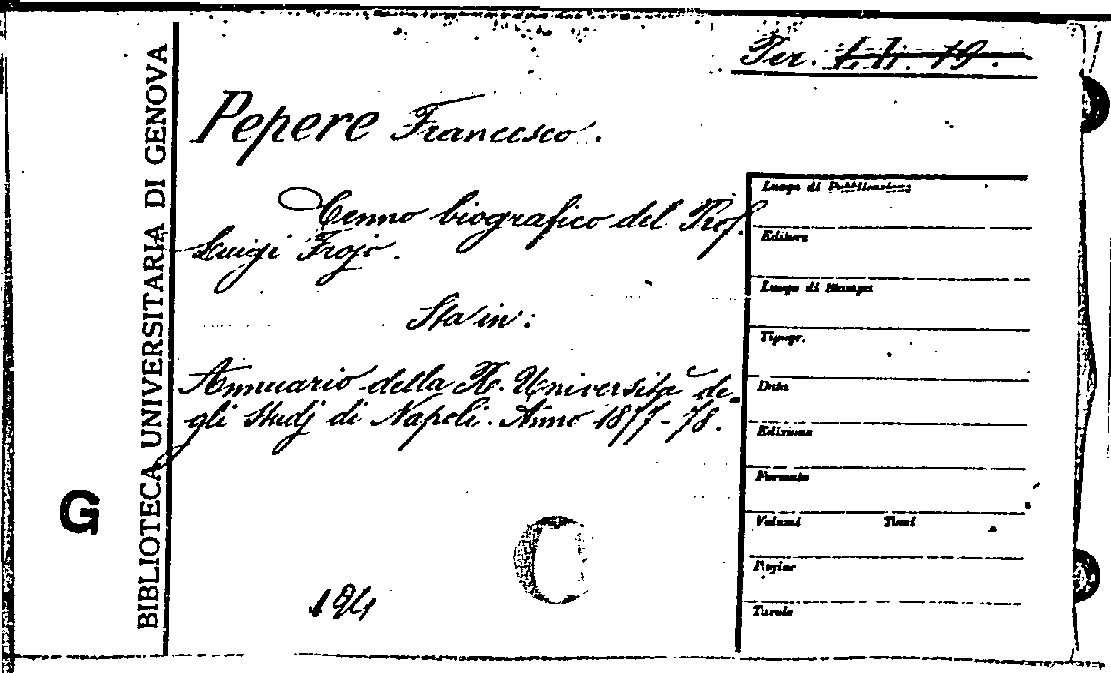 Per. L. li. 19.
Pepere Francesco.
Cenno biografico del Prof.
Luigi Frojo.
Sta in:
Annuario della R. Università de-
gli Studj di Napoli. Anno 1877-78.
194
BIBLIOTECA UNIVERSITARIA DI GENOVA
G
C
Luogo di Pubblicazione
Editore
Luogo di Stampa
Tipogr.
Data
Edizione
Formato
Volumi Tomi
Pagine
Tavole